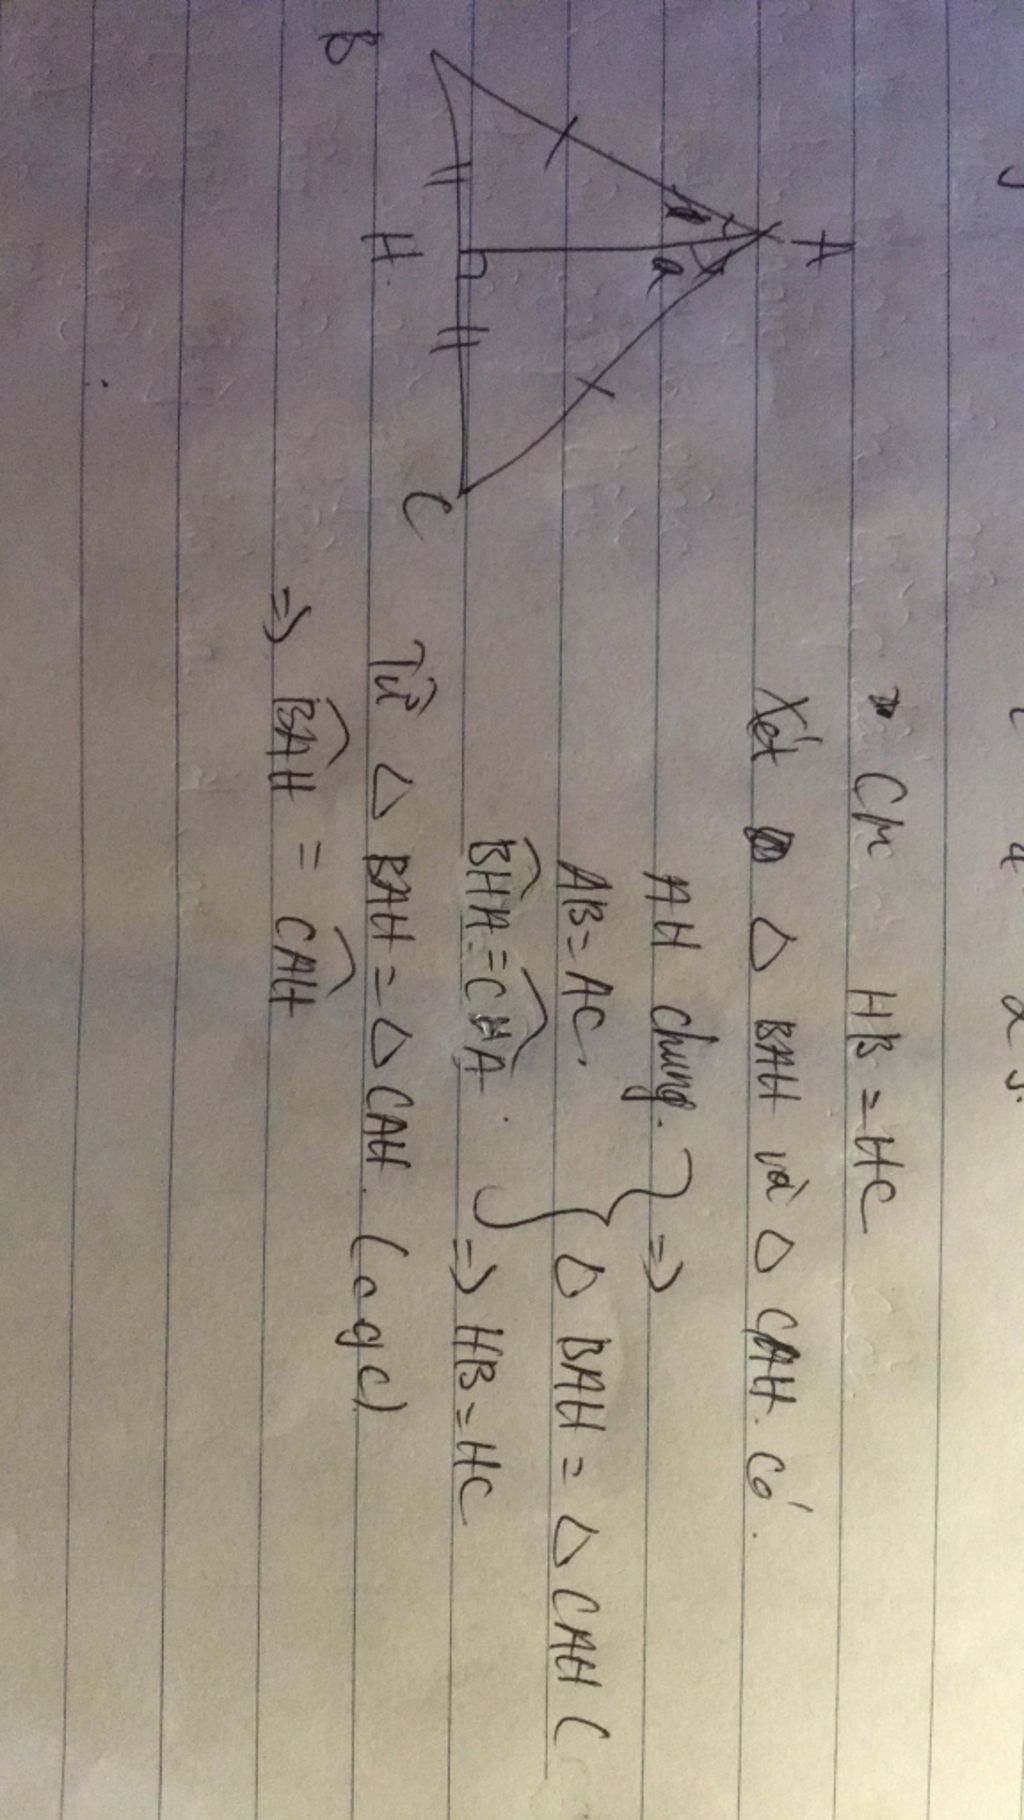 A
B
H
C
a
CM HB = HC
Xét Δ BAH và Δ CAH. Có.
AH chung. } =>
AB = AC. Δ BAH = Δ CAH (
BHA = CHA. => HB = HC
Từ Δ BAH = Δ CAH. (cgc)
=> BAH = CAH